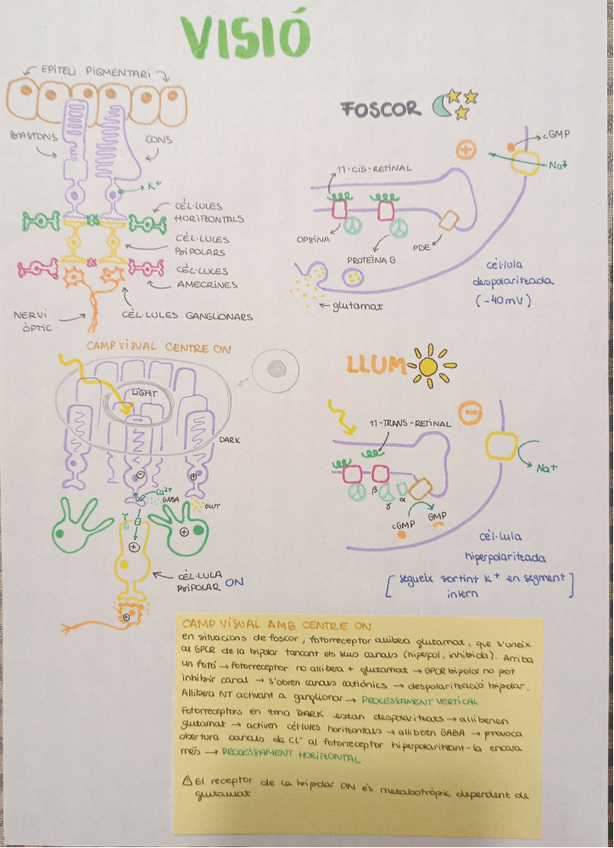 VISIÓ
EPITELI PIGMENTARI
BASTONS
CONS
K+
CÈL·LULES
HORITZONTALS
CÈL·LULES
BIPOLARS
CÈL·LULES
AMECRINES
NERVI
ÒPTIC
CÈL·LULES GANGLIONARS
FOSCOR
cGMP
Na+
11-CIS-RETINAL
OPSINA
PROTEÏNA G
PDE
glutamat
cèl·lula
despolaritzada
(-40mV)
CAMP VISUAL CENTRE ON
LIGHT
DARK
Ca2+
GABA
GLUT
CÈL·LULA
BIPOLAR ON
LLUM
11-TRANS-RETINAL
Na+
β
γ
α
cGMP
GMP
cèl·lula
hiperpolaritzada
[segueix sortint K+ en segment
intern]
CAMP VISUAL AMB CENTRE ON
en situacions de foscor, fotorreceptor allibera glutamat, que s'uneix
al GPCR de la bipolar tancant els seus canals (hiperpol, inhibida). Arriba
un fotó → fotorreceptor no allibera + glutamat → GPCR bipolar no pot
inhibir canal → s'obren canals catiònics → despolarització bipolar.
Allibera NT activant a ganglionar → PROCESSAMENT VERTICAL
Fotorreceptors en zona DARK estan despolaritzats → alliberen
glutamat → activen cèl·lules horitzontals → alliberen GABA → provoca
obertura canals de Cl- al fotorreceptor hiperpolaritzant-la encara
més → PROCESSAMENT HORITZONTAL
⚠ El receptor de la bipolar ON és metabotròpic dependent de
glutamat